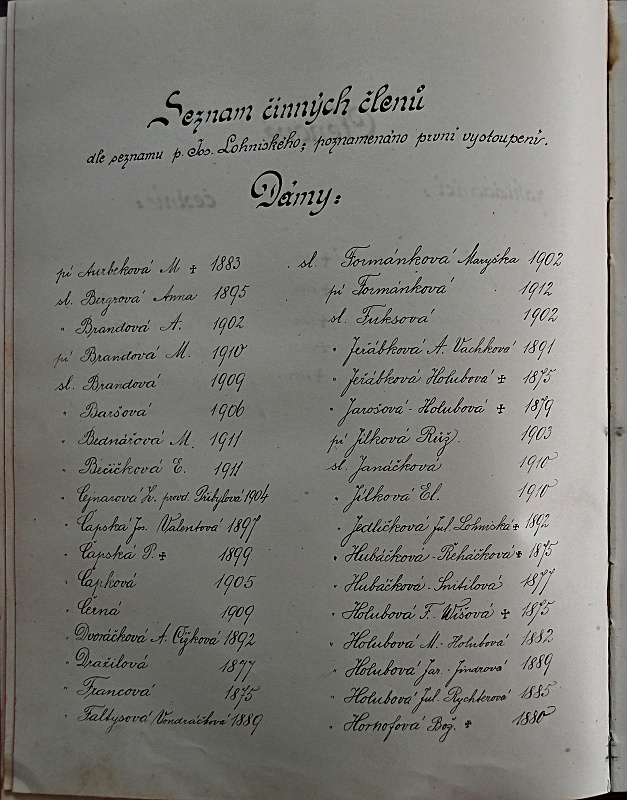 Seznam činných členů
dle seznamu p. Jos. Lohniského; poznamenáno první vystoupení.
Dámy:
pí Aurbeková M ✝ 1883
sl. Bergrová Anna 1895
" Brandová A. 1902
pí Brandová M. 1910
sl. Brandová 1909
" Baršová 1906
" Bednářová M. 1911
" Bečičková E. 1911
" Cejnarová L. provd. Přibylová 1904
" Čapská Jos. Valentová 1897
" Čapská P. ✝ 1899
" Čapková 1905
" Černá 1909
" Dvořáčková A. Čížková 1892
" Dražilová 1877
" Francová 1875
" Faltysová Vondráčková 1889
sl. Formánková Maryška 1902
pí Formánková 1912
sl. Fuksová 1902
" Jeřábková A. Vachková 1891
" Jeřábková Holubová ✝ 1875
" Jarošová-Holubová ✝ 1879
pí Jílková Růž. 1903
sl. Janáčková 1910
" Jílková El. 1910
" Jedličková Jul. Lohniská ✝ 1892
" Hubáčková-Řeháčková ✝ 1875
" Hubáčková-Snítilová 1877
" Holubová F. Wišová ✝ 1875
" Holubová M.-Holubová 1882
" Holubová Jar.-Jindrová 1889
" Holubová Jul. Rychterová 1885
" Hornofová Bož. ✝ 1880